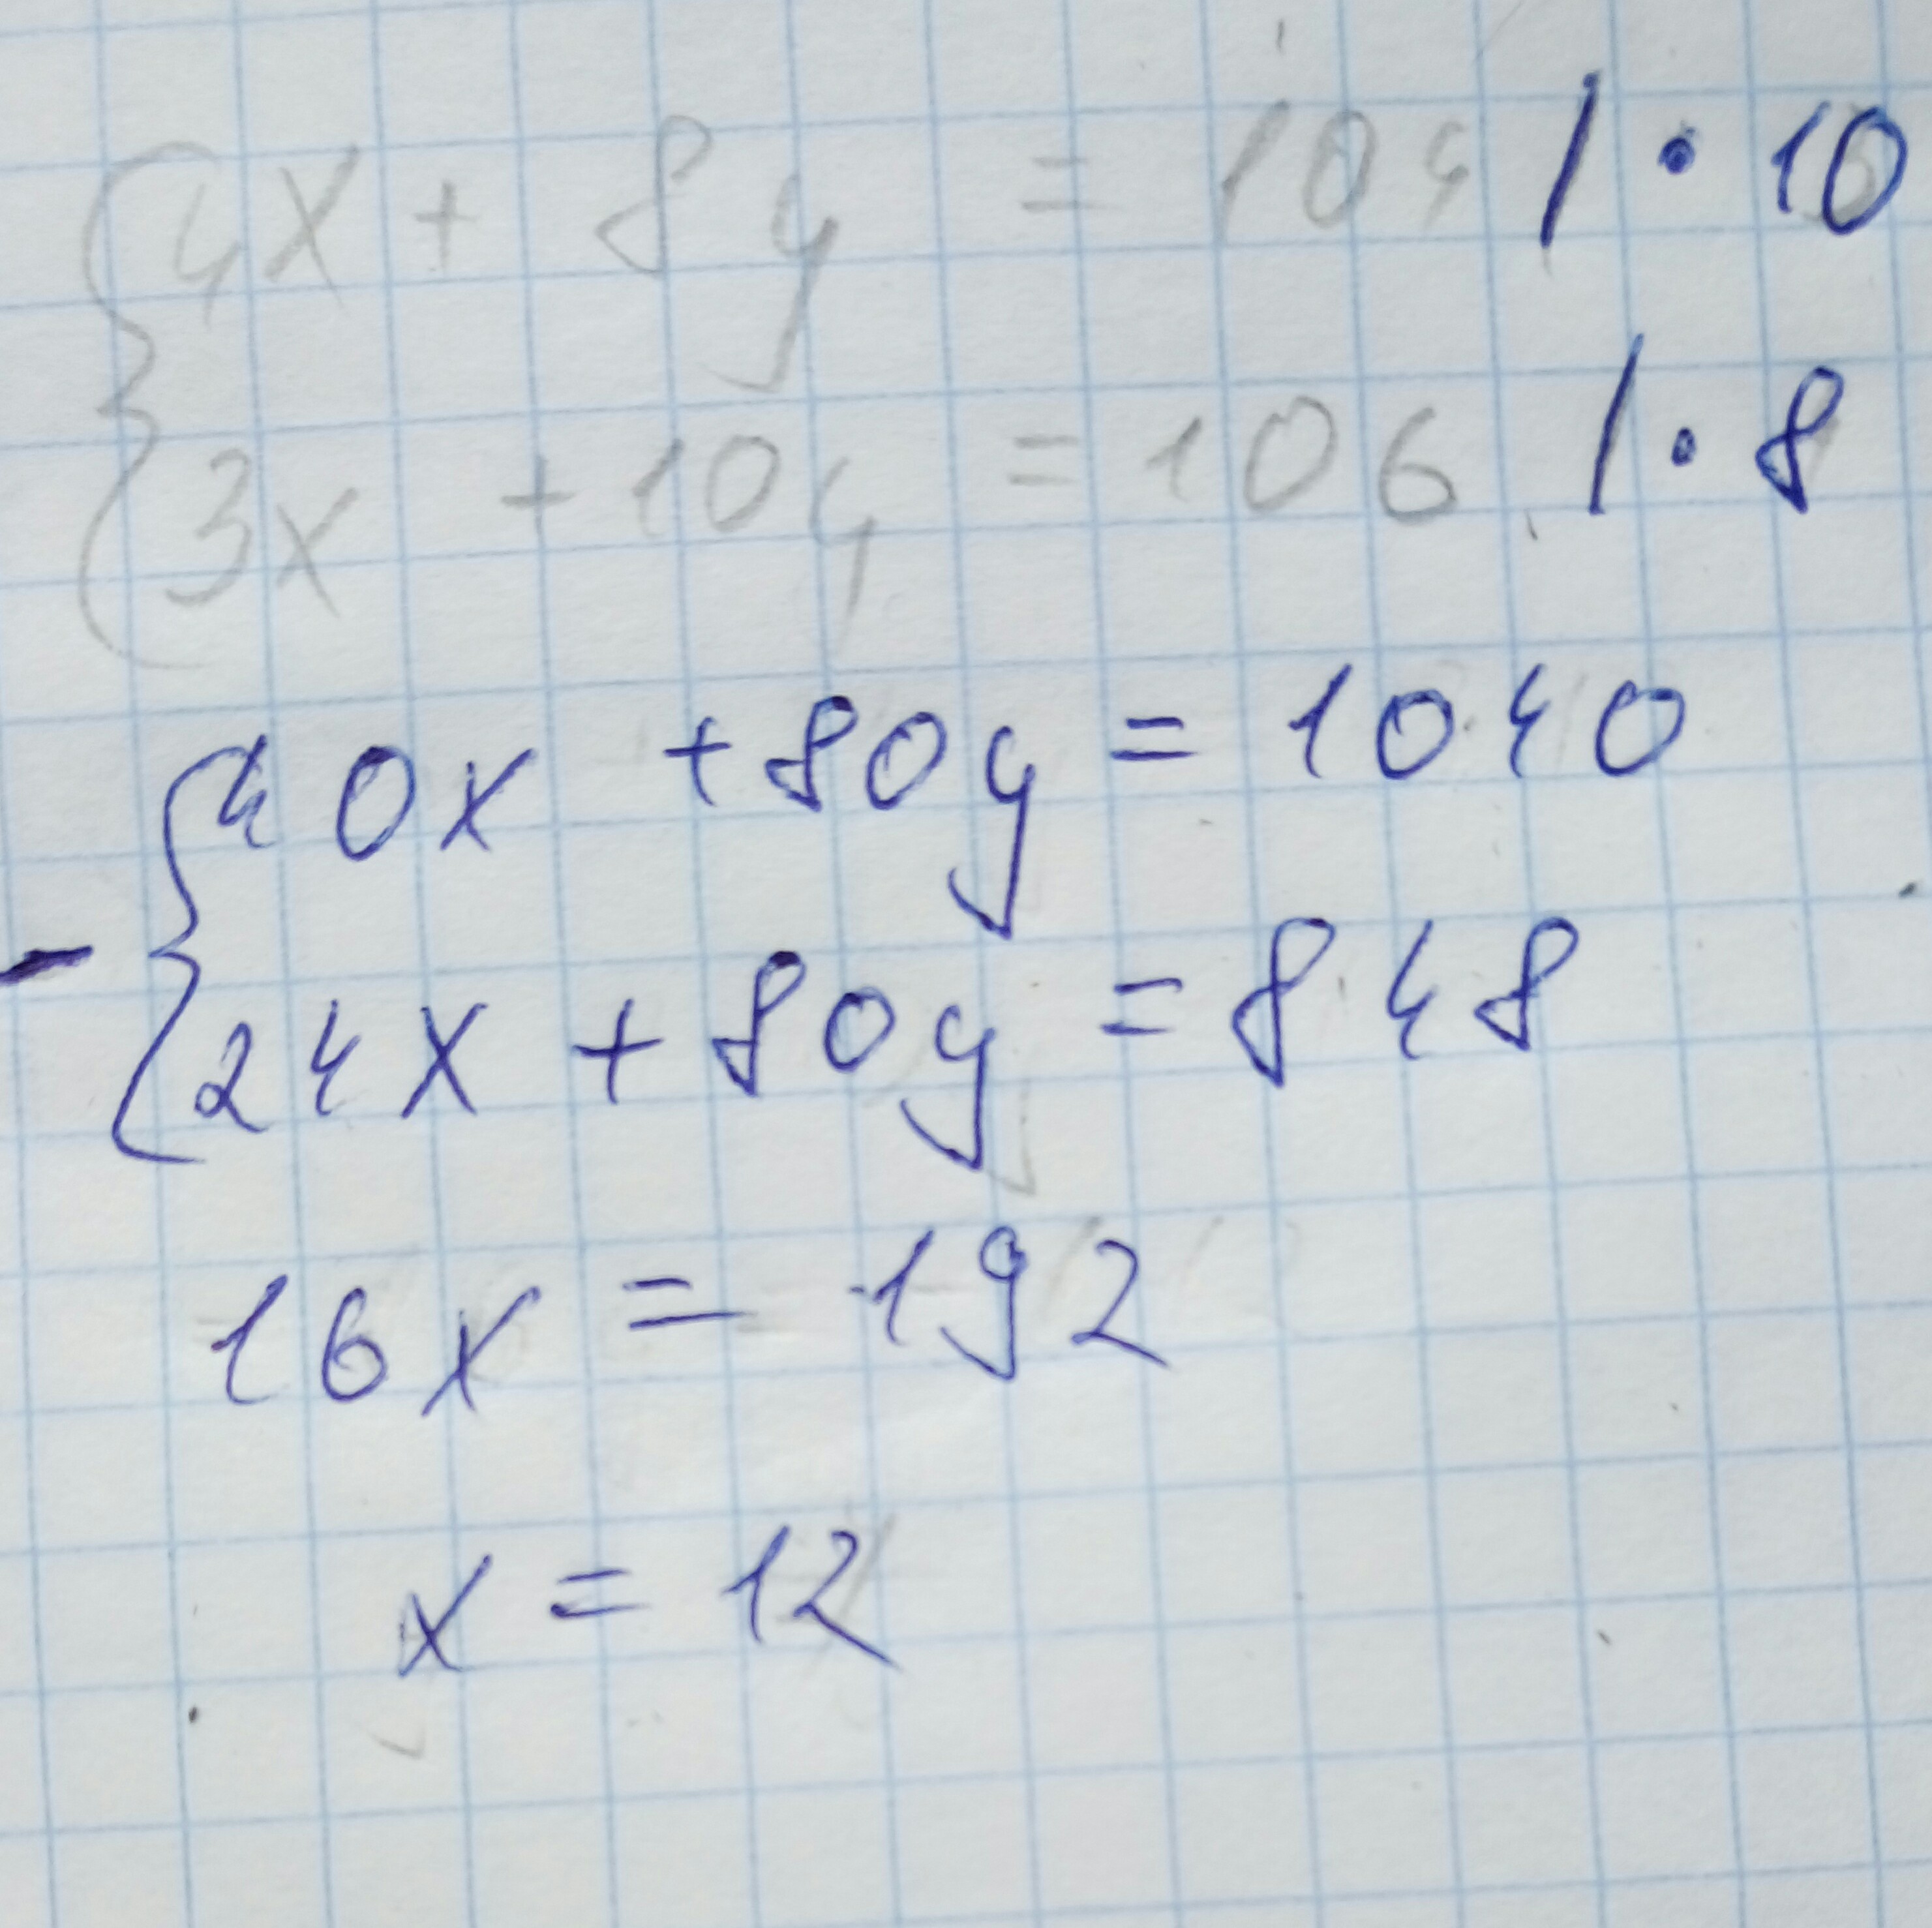 {4x + 8y = 104 | · 10
{3x + 10y = 106 | · 8
{40x + 80y = 1040
- {24x + 80y = 848
16x = 192
x = 12